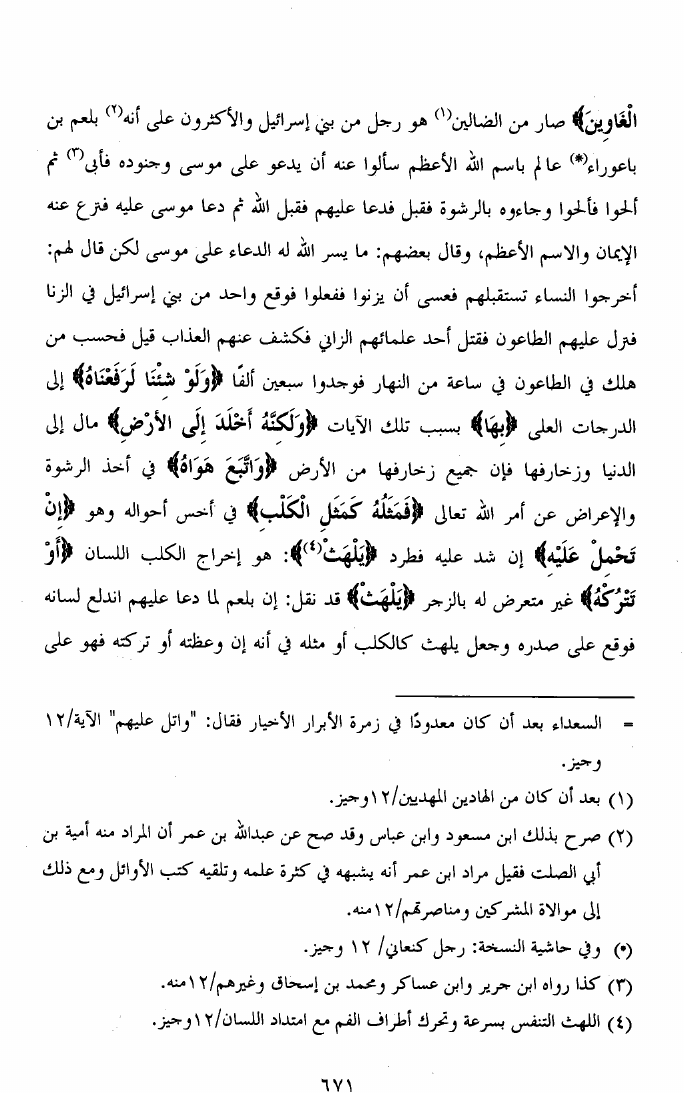 الْغَاوِينَ﴾ صار من الضالين(١) هو رجل من بني إسرائيل والأكثرون على أنه(٢) بلعم بن
باعوراء(*) عالم باسم الله الأعظم سألوا عنه أن يدعو على موسى وجنوده فأبى(٣) ثم
ألحوا فألحوا وجاءوه بالرشوة فقبل فدعا عليهم فقبل الله ثم دعا موسى عليه فنزع عنه
الإيمان والاسم الأعظم، وقال بعضهم: ما يسر الله له الدعاء على موسى لكن قال لهم:
أخرجوا النساء تستقبلهم فعسى أن يزنوا ففعلوا فوقع واحد من بني إسرائيل في الزنا
فنزل عليهم الطاعون فقتل أحد علمائهم الزاني فكشف عنهم العذاب قيل فحسب من
هلك في الطاعون في ساعة من النهار فوجدوا سبعين ألفًا ﴿وَلَوْ شِئْنَا لَرَفَعْنَاهُ﴾ إلى
الدرجات العلى ﴿بِهَا﴾ بسبب تلك الآيات ﴿وَلَكِنَّهُ أَخْلَدَ إِلَى الأَرْضِ﴾ مال إلى
الدنيا وزخارفها فإن جميع زخارفها من الأرض ﴿وَاتَّبَعَ هَوَاهُ﴾ في أخذ الرشوة
والإعراض عن أمر الله تعالى ﴿فَمَثَلُهُ كَمَثَلِ الْكَلْبِ﴾ في أخس أحواله وهو ﴿إِنْ
تَحْمِلْ عَلَيْهِ﴾ إن شد عليه فطرد ﴿يَلْهَثْ(٤)﴾: هو إخراج الكلب اللسان ﴿أَوْ
تَتْرُكْهُ﴾ غير متعرض له بالزجر ﴿يَلْهَثْ﴾ قد نقل: إن بلعم لما دعا عليهم اندلع لسانه
فوقع على صدره وجعل يلهث كالكلب أو مثله في أنه إن وعظته أو تركته فهو على
= السعداء بعد أن كان معدودًا في زمرة الأبرار الأخيار فقال: "واتل عليهم" الآية/١٢
وجيز.
(١) بعد أن كان من الهادين المهديين/١٢وجيز.
(٢) صرح بذلك ابن مسعود وابن عباس وقد صح عن عبدالله بن عمر أن المراد منه أمية بن
أبي الصلت فقيل مراد ابن عمر أنه يشبهه في كثرة علمه وتلقيه كتب الأوائل ومع ذلك
إلى موالاة المشركين ومناصرتهم/١٢منه.
(*) وفي حاشية النسخة: رجل كنعاني/ ١٢ وجيز.
(٣) كذا رواه ابن جرير وابن عساكر ومحمد بن إسحاق وغيرهم/١٢منه.
(٤) اللهث التنفس بسرعة وتحرك أطراف الفم مع امتداد اللسان/١٢وجيز.
٦٧١